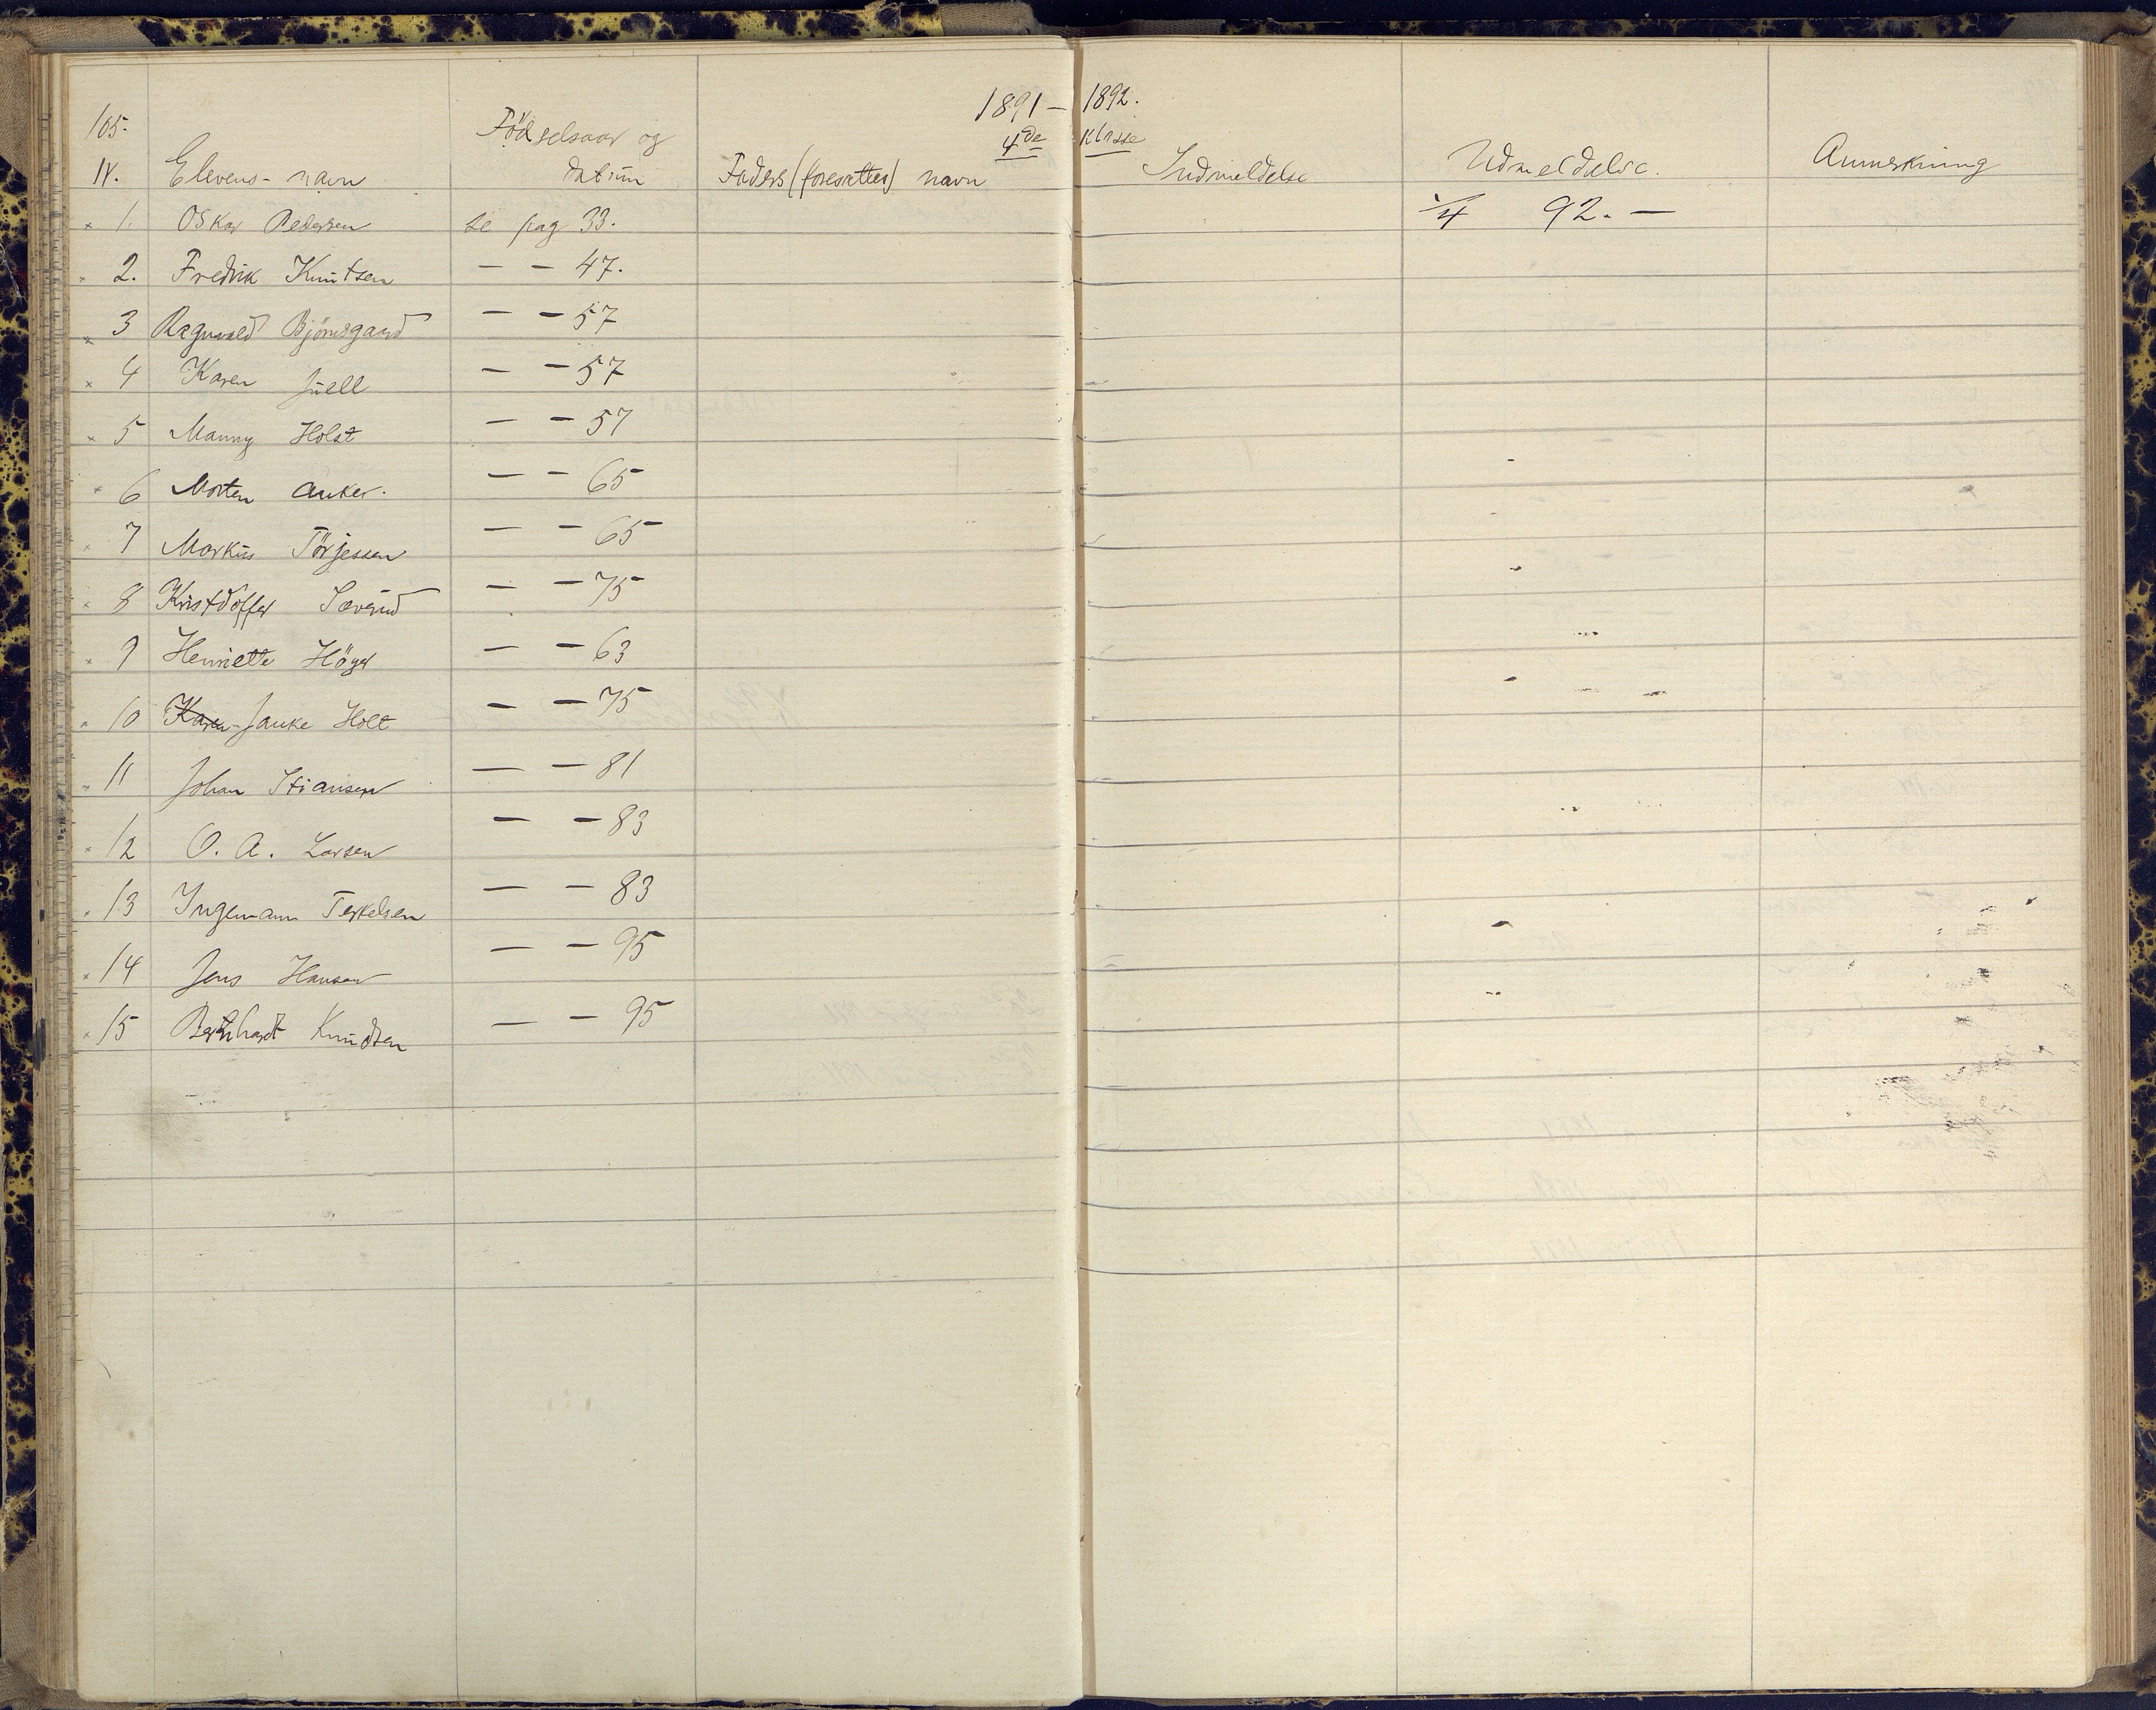 1891 – 1892.
105.
4de Klasse
N. Elevens- navn Födselsaar og datum Faders (foresattes) navn Indmeldelse Udmeldelse. Anmerkning
1. Oskar Pedersen se pag 33. 1/4 92. —
2. Fredrik Knutsen — — 47.
3 Ragnvald Bjömsgaard — — 57
4 Karen Juell — — 57
5 Manny Holst — — 57
6 Morten Anker. — — 65
7 Markus Törjessen — — 65
8 Kristoffer — — 75
9 Henriette Höyer — — 63
10 Karen Janke Holt — — 75
11 Johan Stiansen — — 81
12 O. A. Larsen — — 83
13 Ingemann Terkelsen — — 83
14 Jens Hansen — — 95
15 Bernhardt Knudsen — — 95